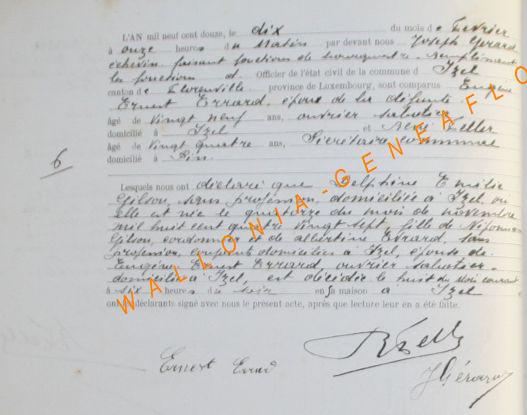 L'AN mil neuf cent douze, le dix du mois de février
à onze heures du matin par devant nous Joseph Gérard
échevin faisant fonctions de bourgmestre, remplissant
les fonctions d. Officier de l'état civil de la commune d Izel
canton de Florenville, province de Luxembourg, sont comparus Eugène
Ernest Errard, époux de la défunte
âgé de vingt neuf ans, ouvrier sabotier
domicilié à Izel et René Zeller
âgé de vingt quatre ans, Secrétaire communal
domicilié à Pin
6
Lesquels nous ont déclaré que Delphine Emilie
Gilson, sans profession domiciliée à Izel ou
elle est née le quatorze du mois de novembre
mil huit cent quatre vingt sept, fille de Népomucène
Gilson, cordonnier et de Albertine Evrard, sans
profession, conjoints domiciliés à Izel, épouse de
Eugène Ernest Errard, ouvrier sabotier
domicilié à Izel, est décédée le huit du mois courant
à six heures du soir en sa maison à Izel
ont les déclarants signé avec nous le présent acte, après que lecture leur en a été faite.
Ernest Errard
RZeller
JGérard
WALLONIA-GENEAFLO